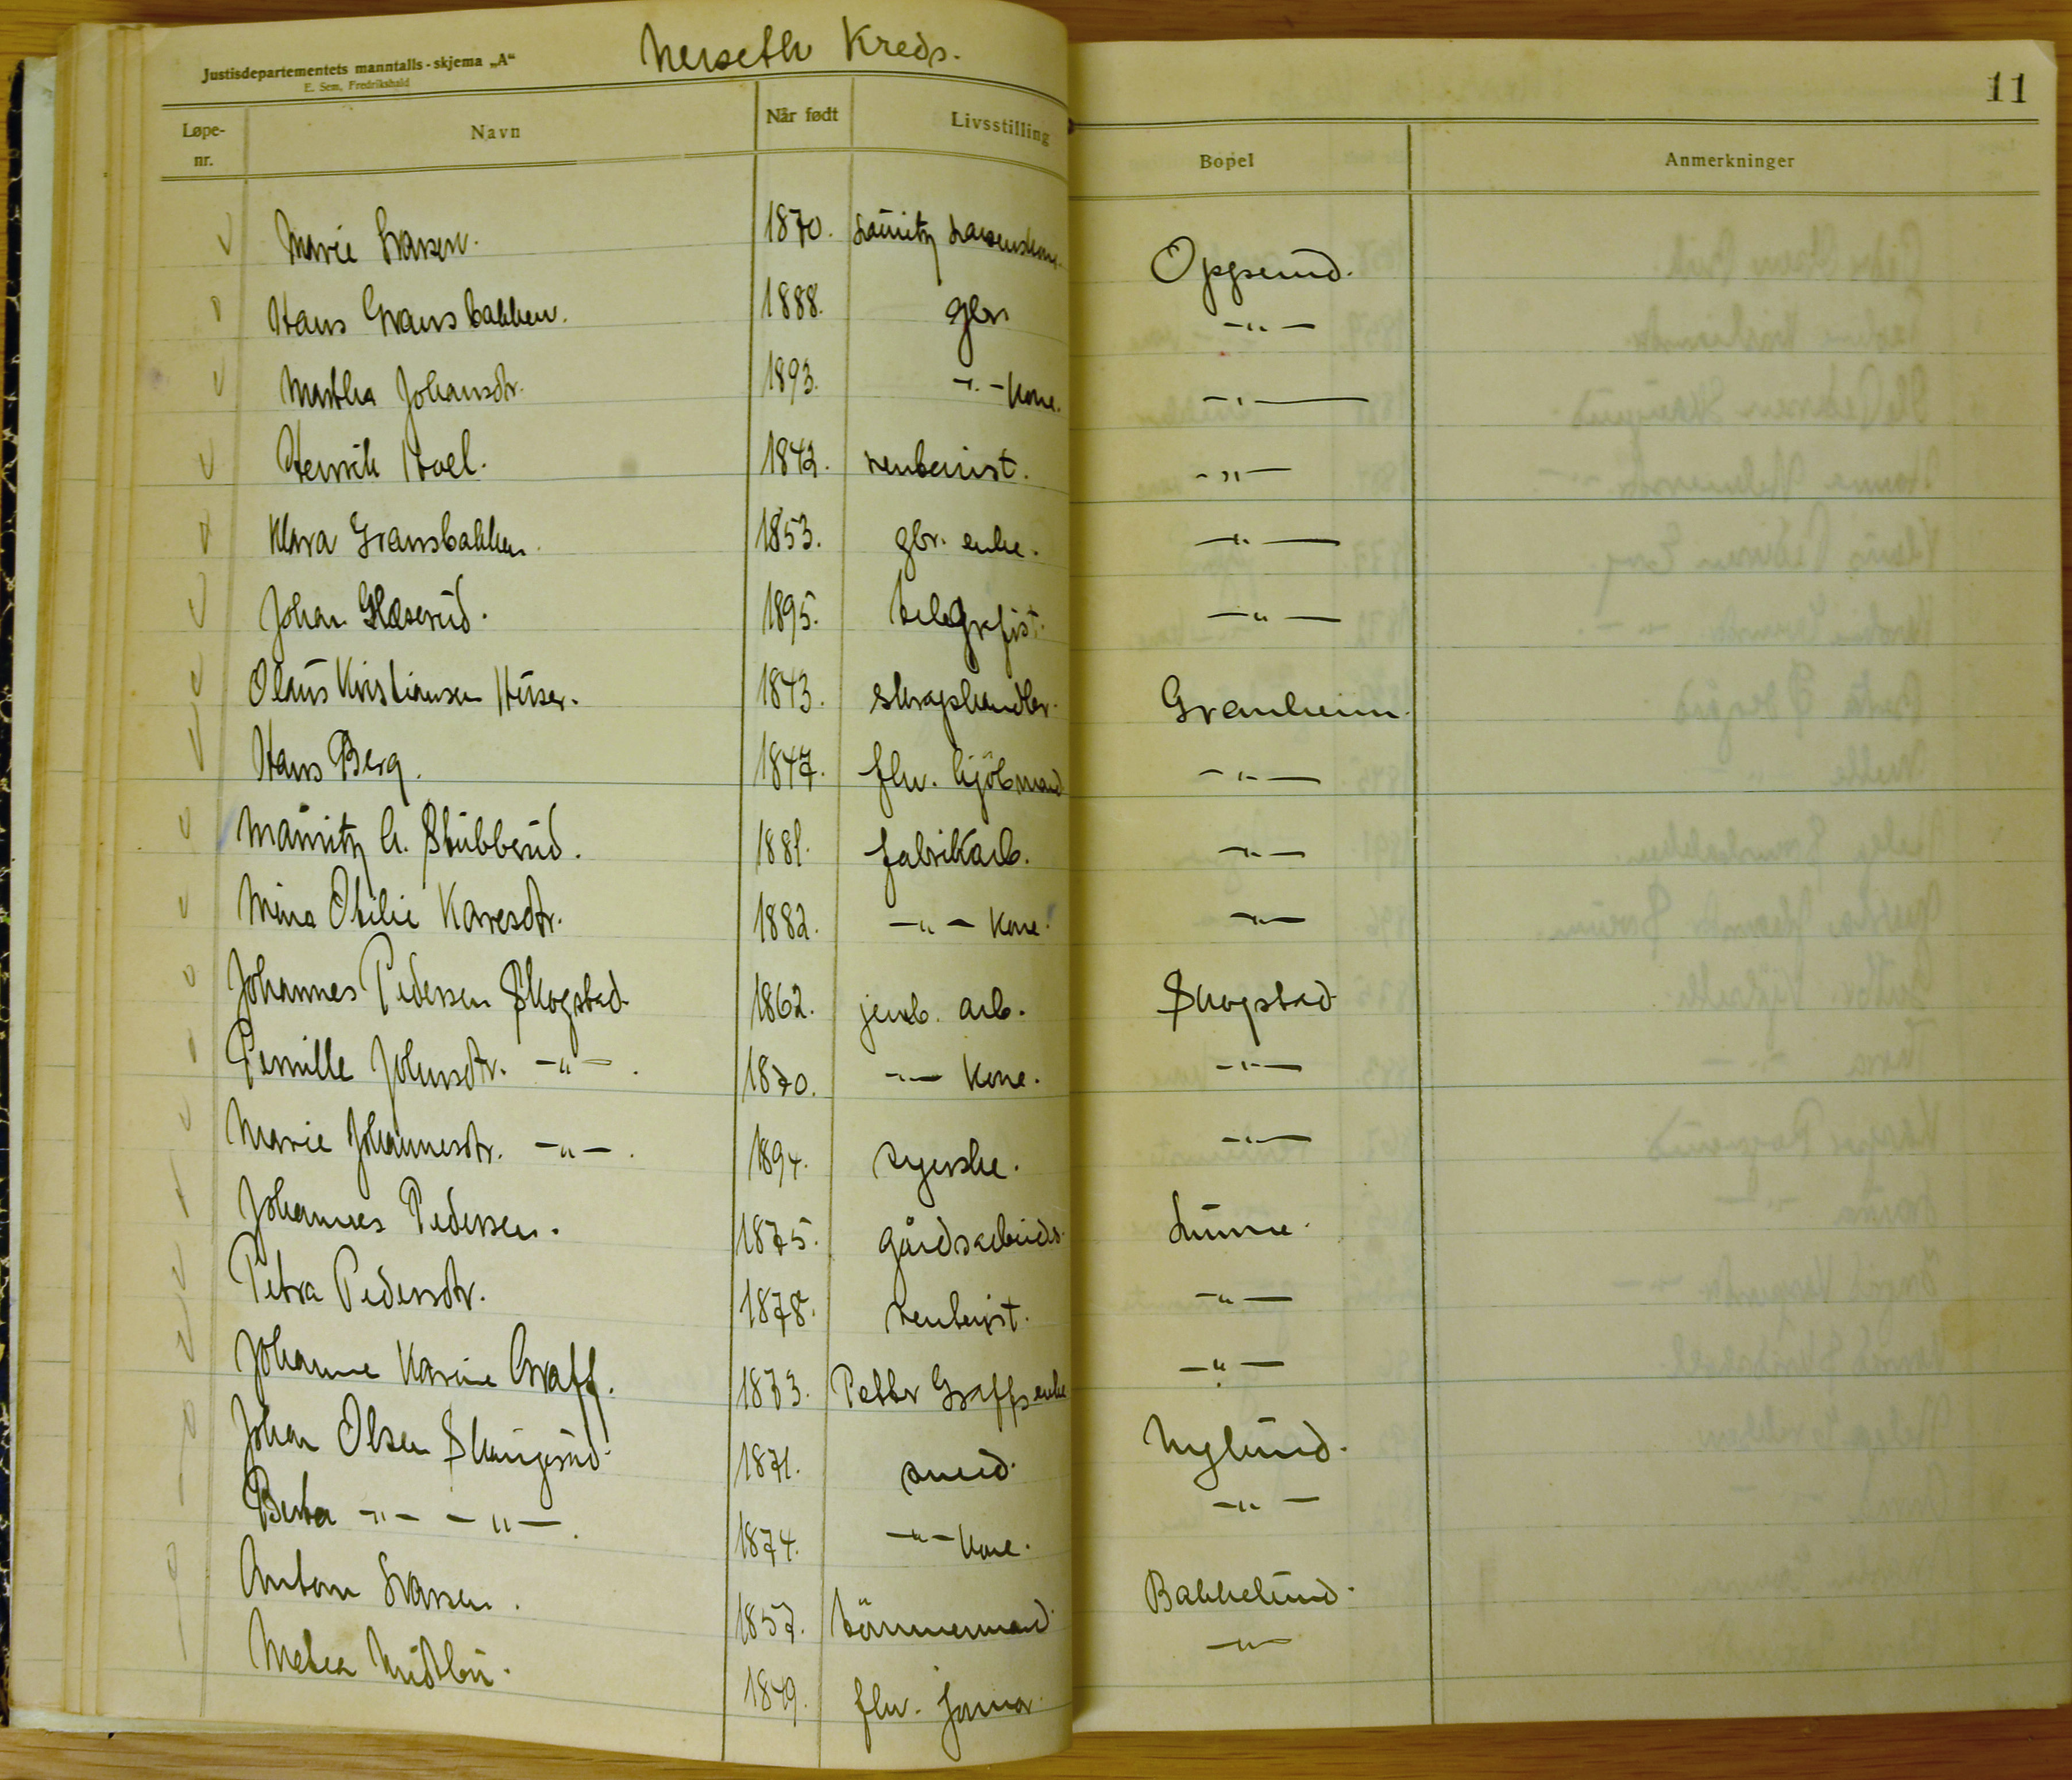 Justisdepartementets manntalls-skjema „A“
E. Sem, Fredrikshald
Kreds.
11
Løpe-nr. Navn Når født Livsstilling Bopel Anmerkninger
Marie Larsen. 1870. Lauritz Larsens kone. Oppsund.
Hans Gransbakken. 1888. gbr. -"-
Martha Johansdtr. 1893. -"- Kone. -"-
Henrik Hoel. 1842. rentenist. -"-
Klara Gransbakken. 1853. gbr. enke. -"-
Johan Glæserud. 1895. telegrafist. -"-
Olaus Kristiansen Huser. 1843. skraphandler. Granheim.
Hans Berg. 1847. fhv. kjöbmand -"-
Mauritz A. Stubberud. 1881. fabrikarb. -"-
Mina Otilie Karesdtr. 1882. -"- Kone. -"-
Johannes Pedersen Skogstad 1862. jernb. arb. Skogstad
Pernille Johnsdtr. -"-. 1870. -"- Kone. -"-
Marie Johannesdtr. -"-. 1894. syerske. -"-
Johannes Pedersen. 1875. gårdsarbeider. Lunne.
Petra Pedersdtr. 1878. rentenist. -"-
Johanne Karine Graff. 1873. Petter Graffs enke -"-
Johan Olsen Skaugerud. 1871. smed. Nylund.
Berta -"- -"-. 1874. -"- Kone. -"-
Anton Larsen. 1857. tömmermand. Bakkelund.
Metea 1849. fhv. -"-